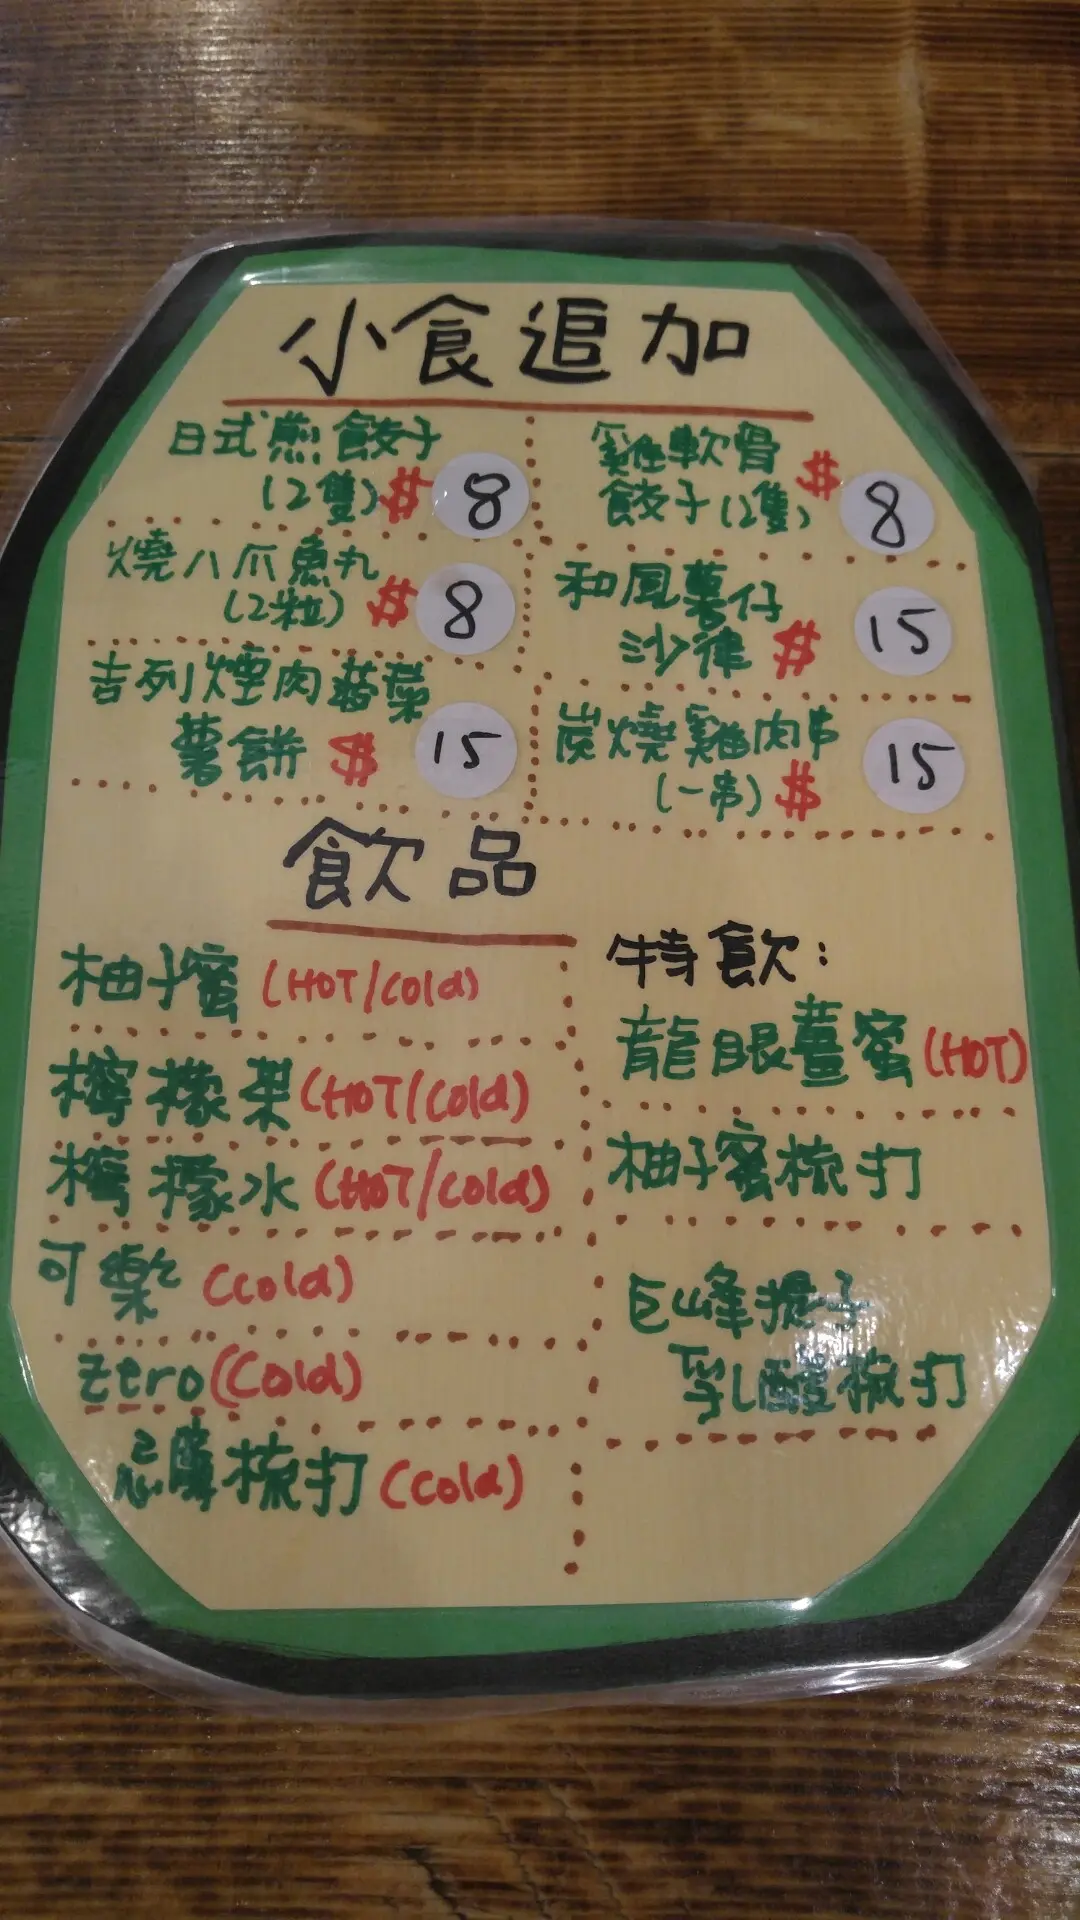 小食追加
日式煎餃子
(2隻) $ 8
雞軟骨
餃子(2隻) $ 8
燒八爪魚丸
(2粒) $ 8
和風薯仔
沙律 $ 15
吉列煙肉蕃菜
薯餅 $ 15
炭燒雞肉串
(一串) $ 15
飲品
柚子蜜 (HOT/Cold)
檸檬栗(HOT/Cold)
檸檬水 (HOT/Cold)
可樂 (Cold)
zero(Cold)
忌廉梳打 (Cold)
特飲:
龍眼薑蜜(HOT)
柚子蜜梳打
巨峰提子
乳酸梳打